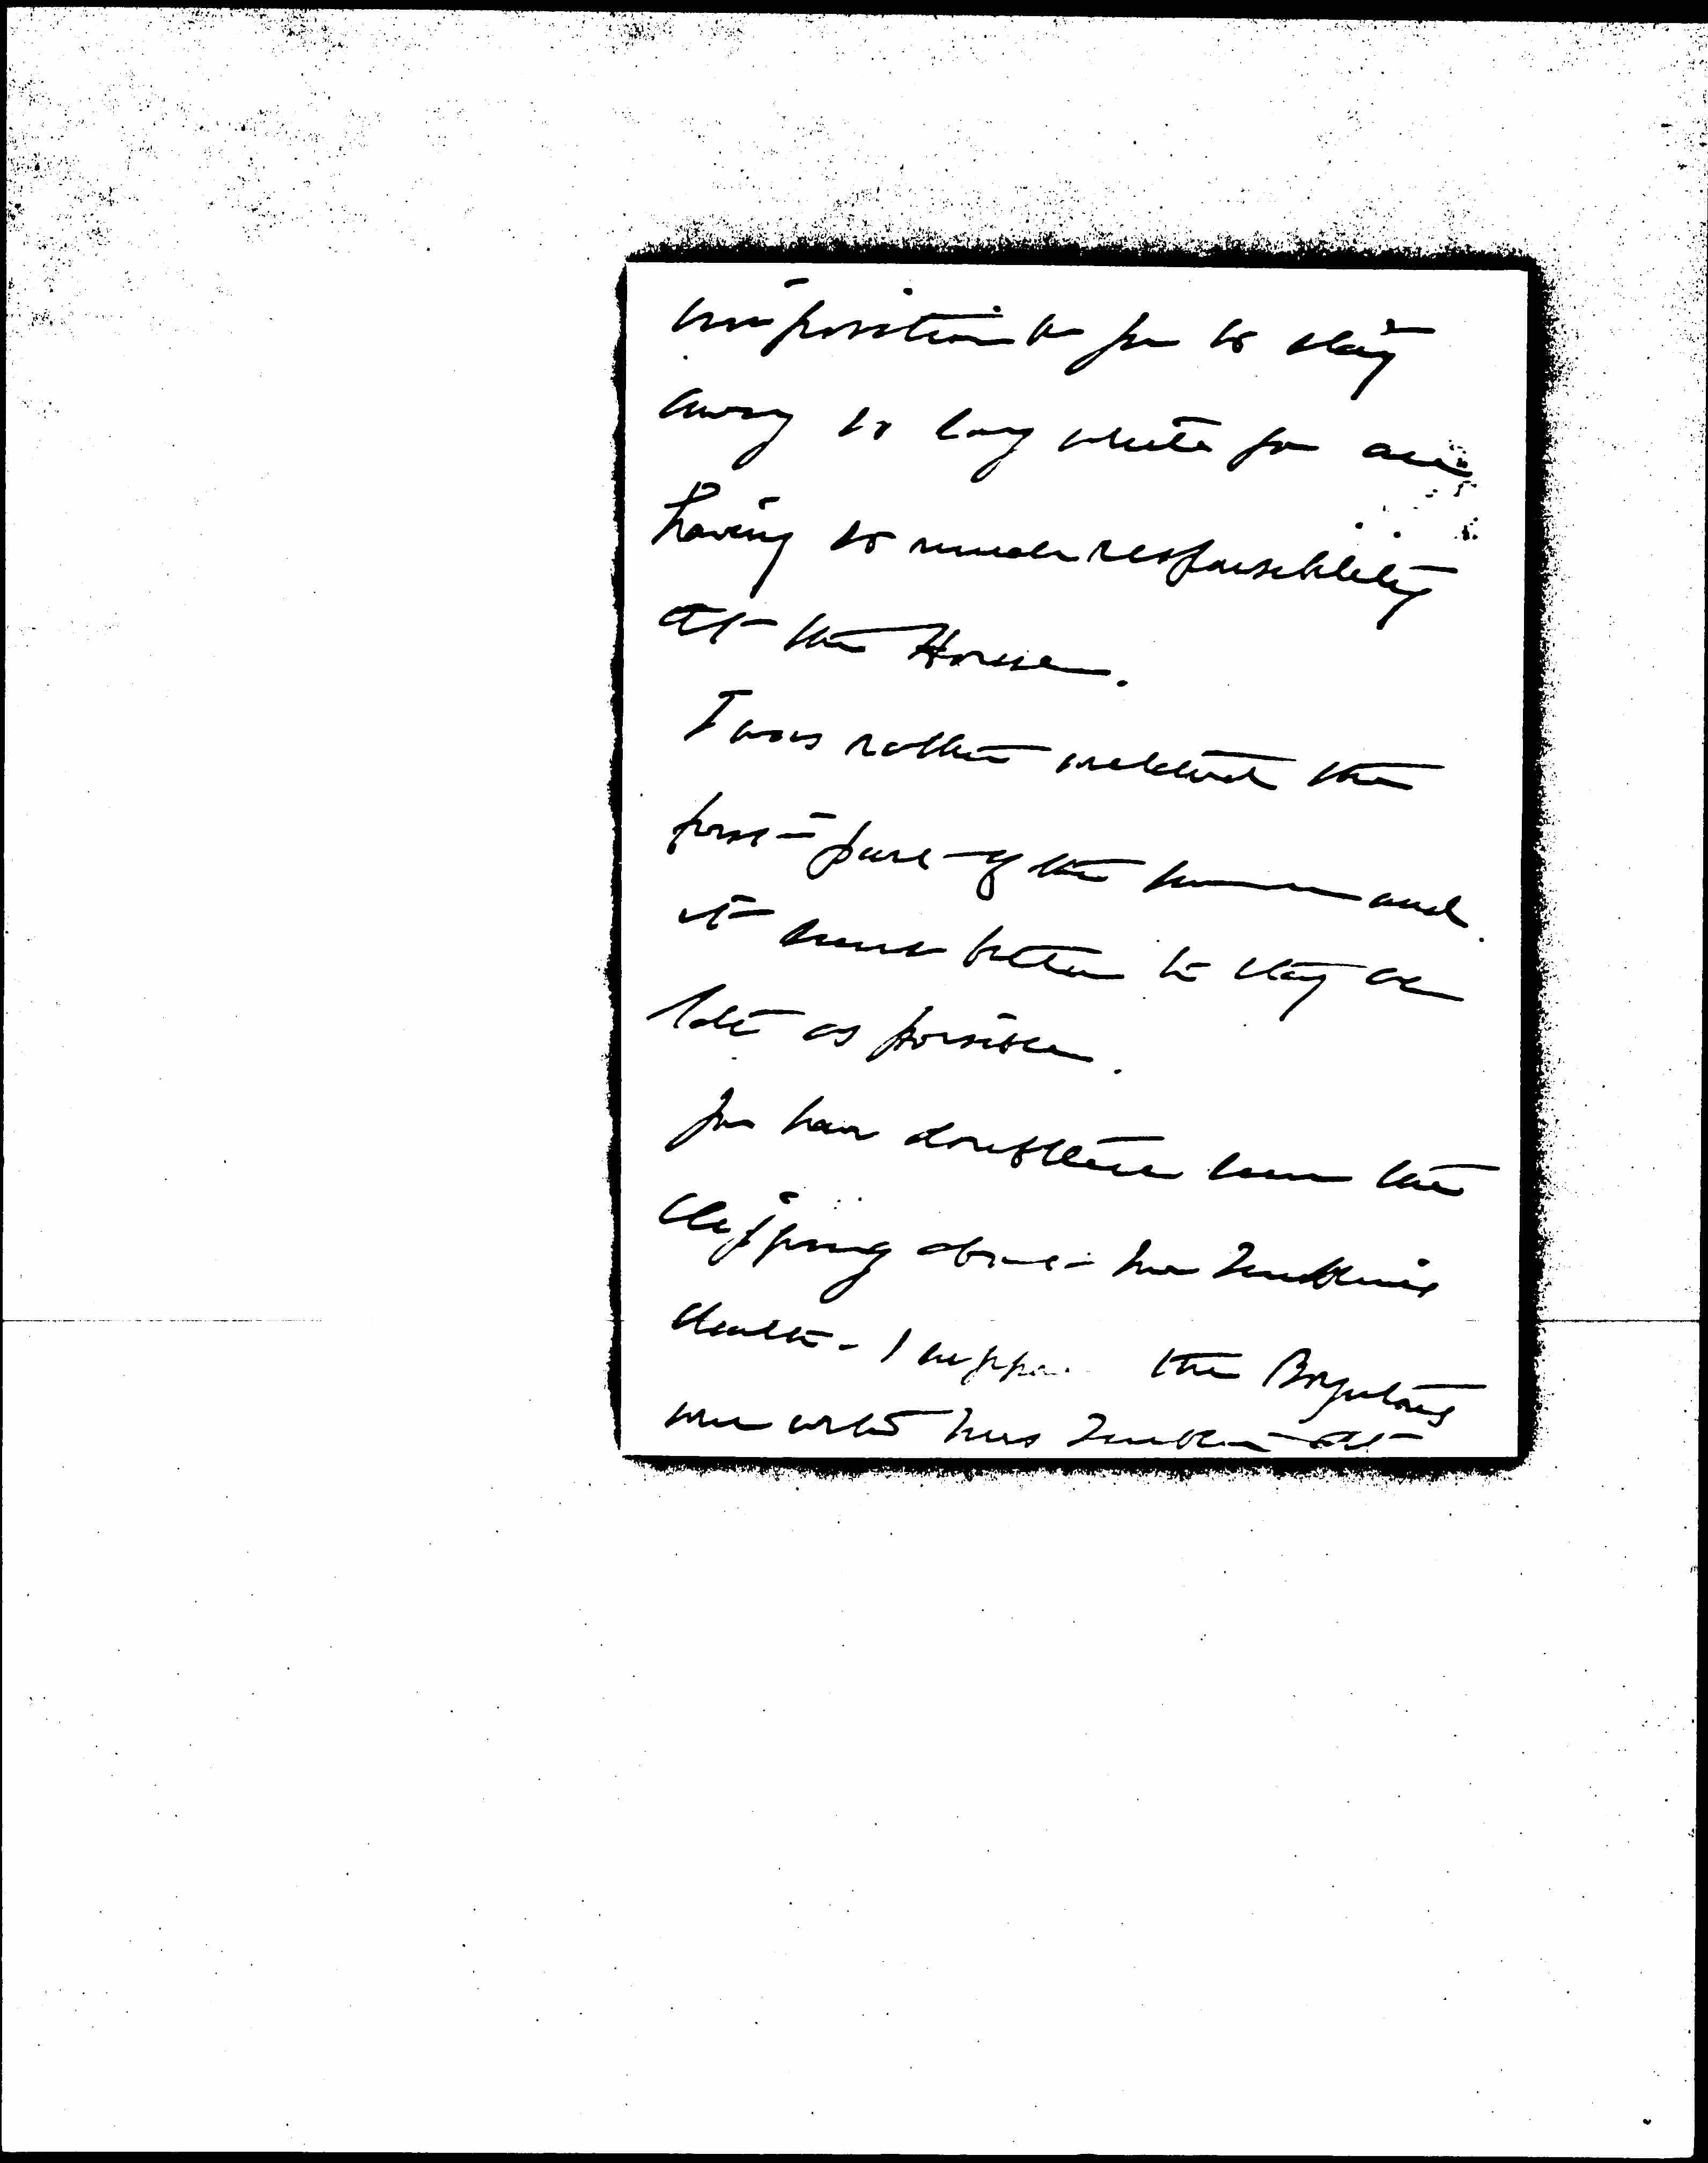 imposition to you to stay
away so long while you are
having so much responsibility
at the House.
I was rather wretched the
first part of the summer and
it seemed better to stay as
late as possible.
You have doubtless seen the
clipping about Mr
death - I suppose the Boyntons
were with Mrs at